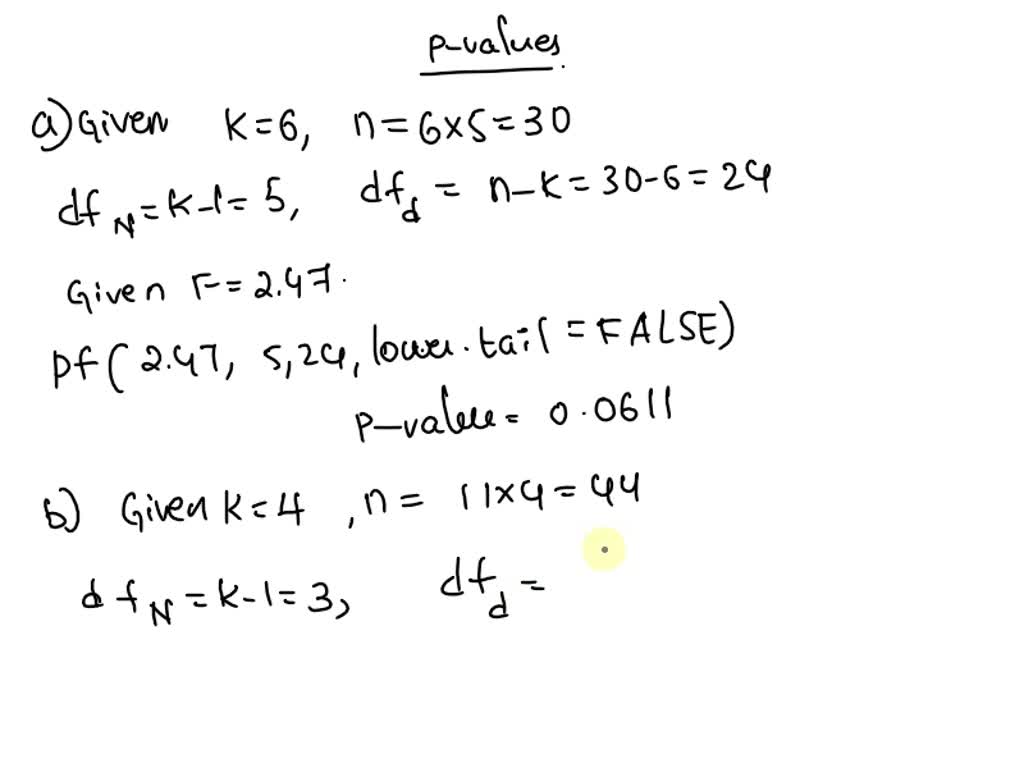 p-values.
a) Given K=6, n=6×5=30
df_N = k-1= 5, df_d = n-k=30-6=24
Given F=2.47.
pf( 2.47, 5,24, lower.tail = FALSE)
p-value= 0.0611
b) Given k=4, n= 11×4=44
df_N = k-1=3, df_d =